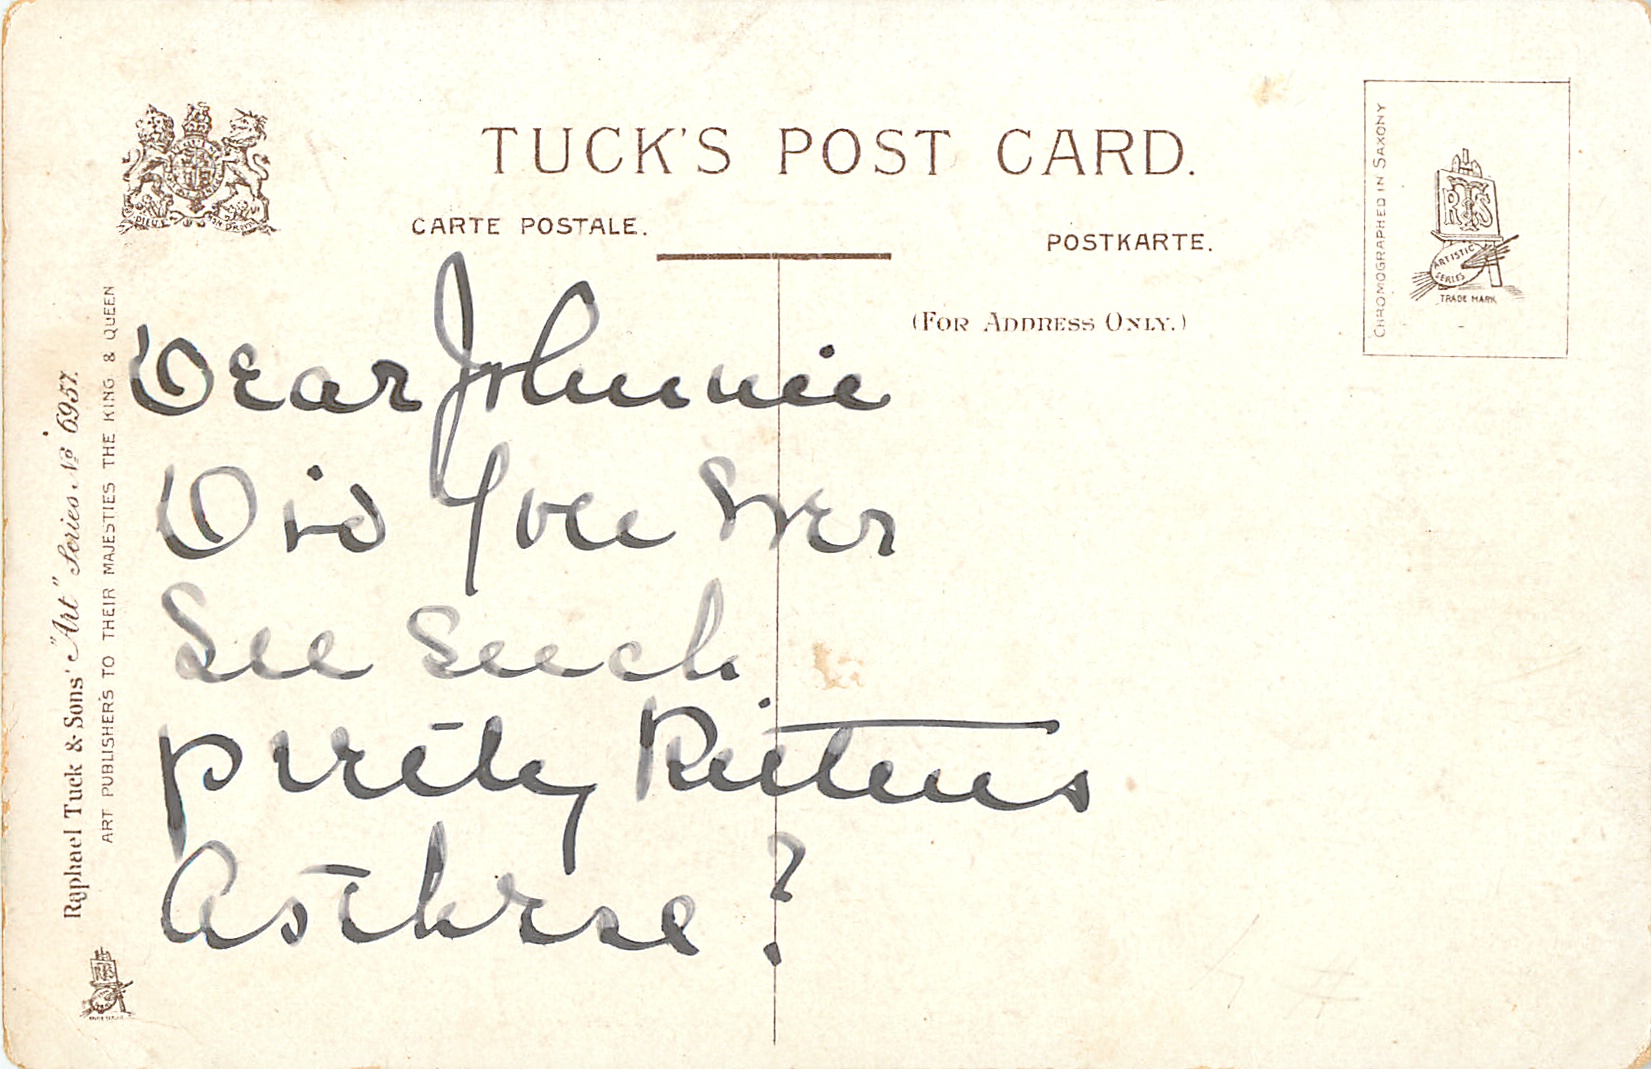 TUCK'S POST CARD.
CARTE POSTALE.
POSTKARTE.
(FOR ADDRESS ONLY.)
CHROMOGRAPHED IN SAXONY
RTS
ARTISTIC
SERIES
TRADE MARK
DIEU ET MON DROIT
Raphael Tuck & Sons' "Art" Series, No 6957.
ART PUBLISHERS TO THEIR MAJESTIES THE KING & QUEEN
Dear Johnnie
Did You Ever
See Such
pretty Kittens
As these?